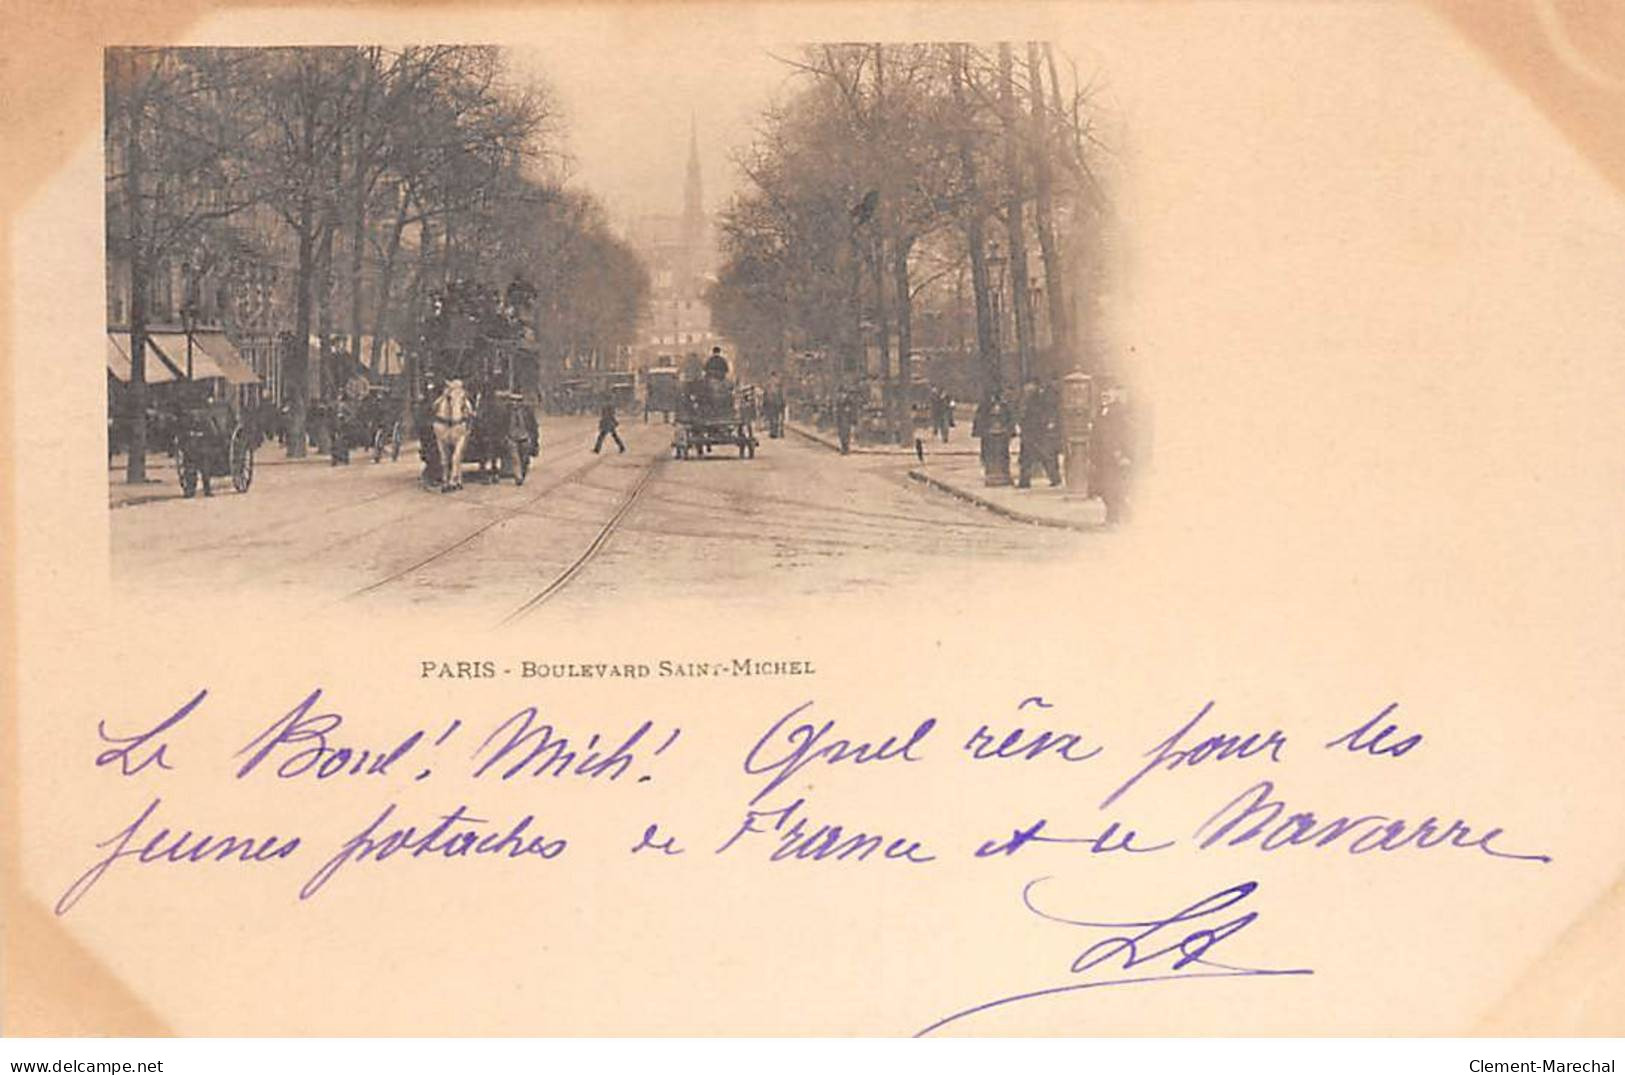 PARIS - BOULEVARD SAINT-MICHEL
Le Boul! Mich! Quel rêve pour les
jeunes potaches de France et de Navarre
www.delcampe.net
Clement-Marechal